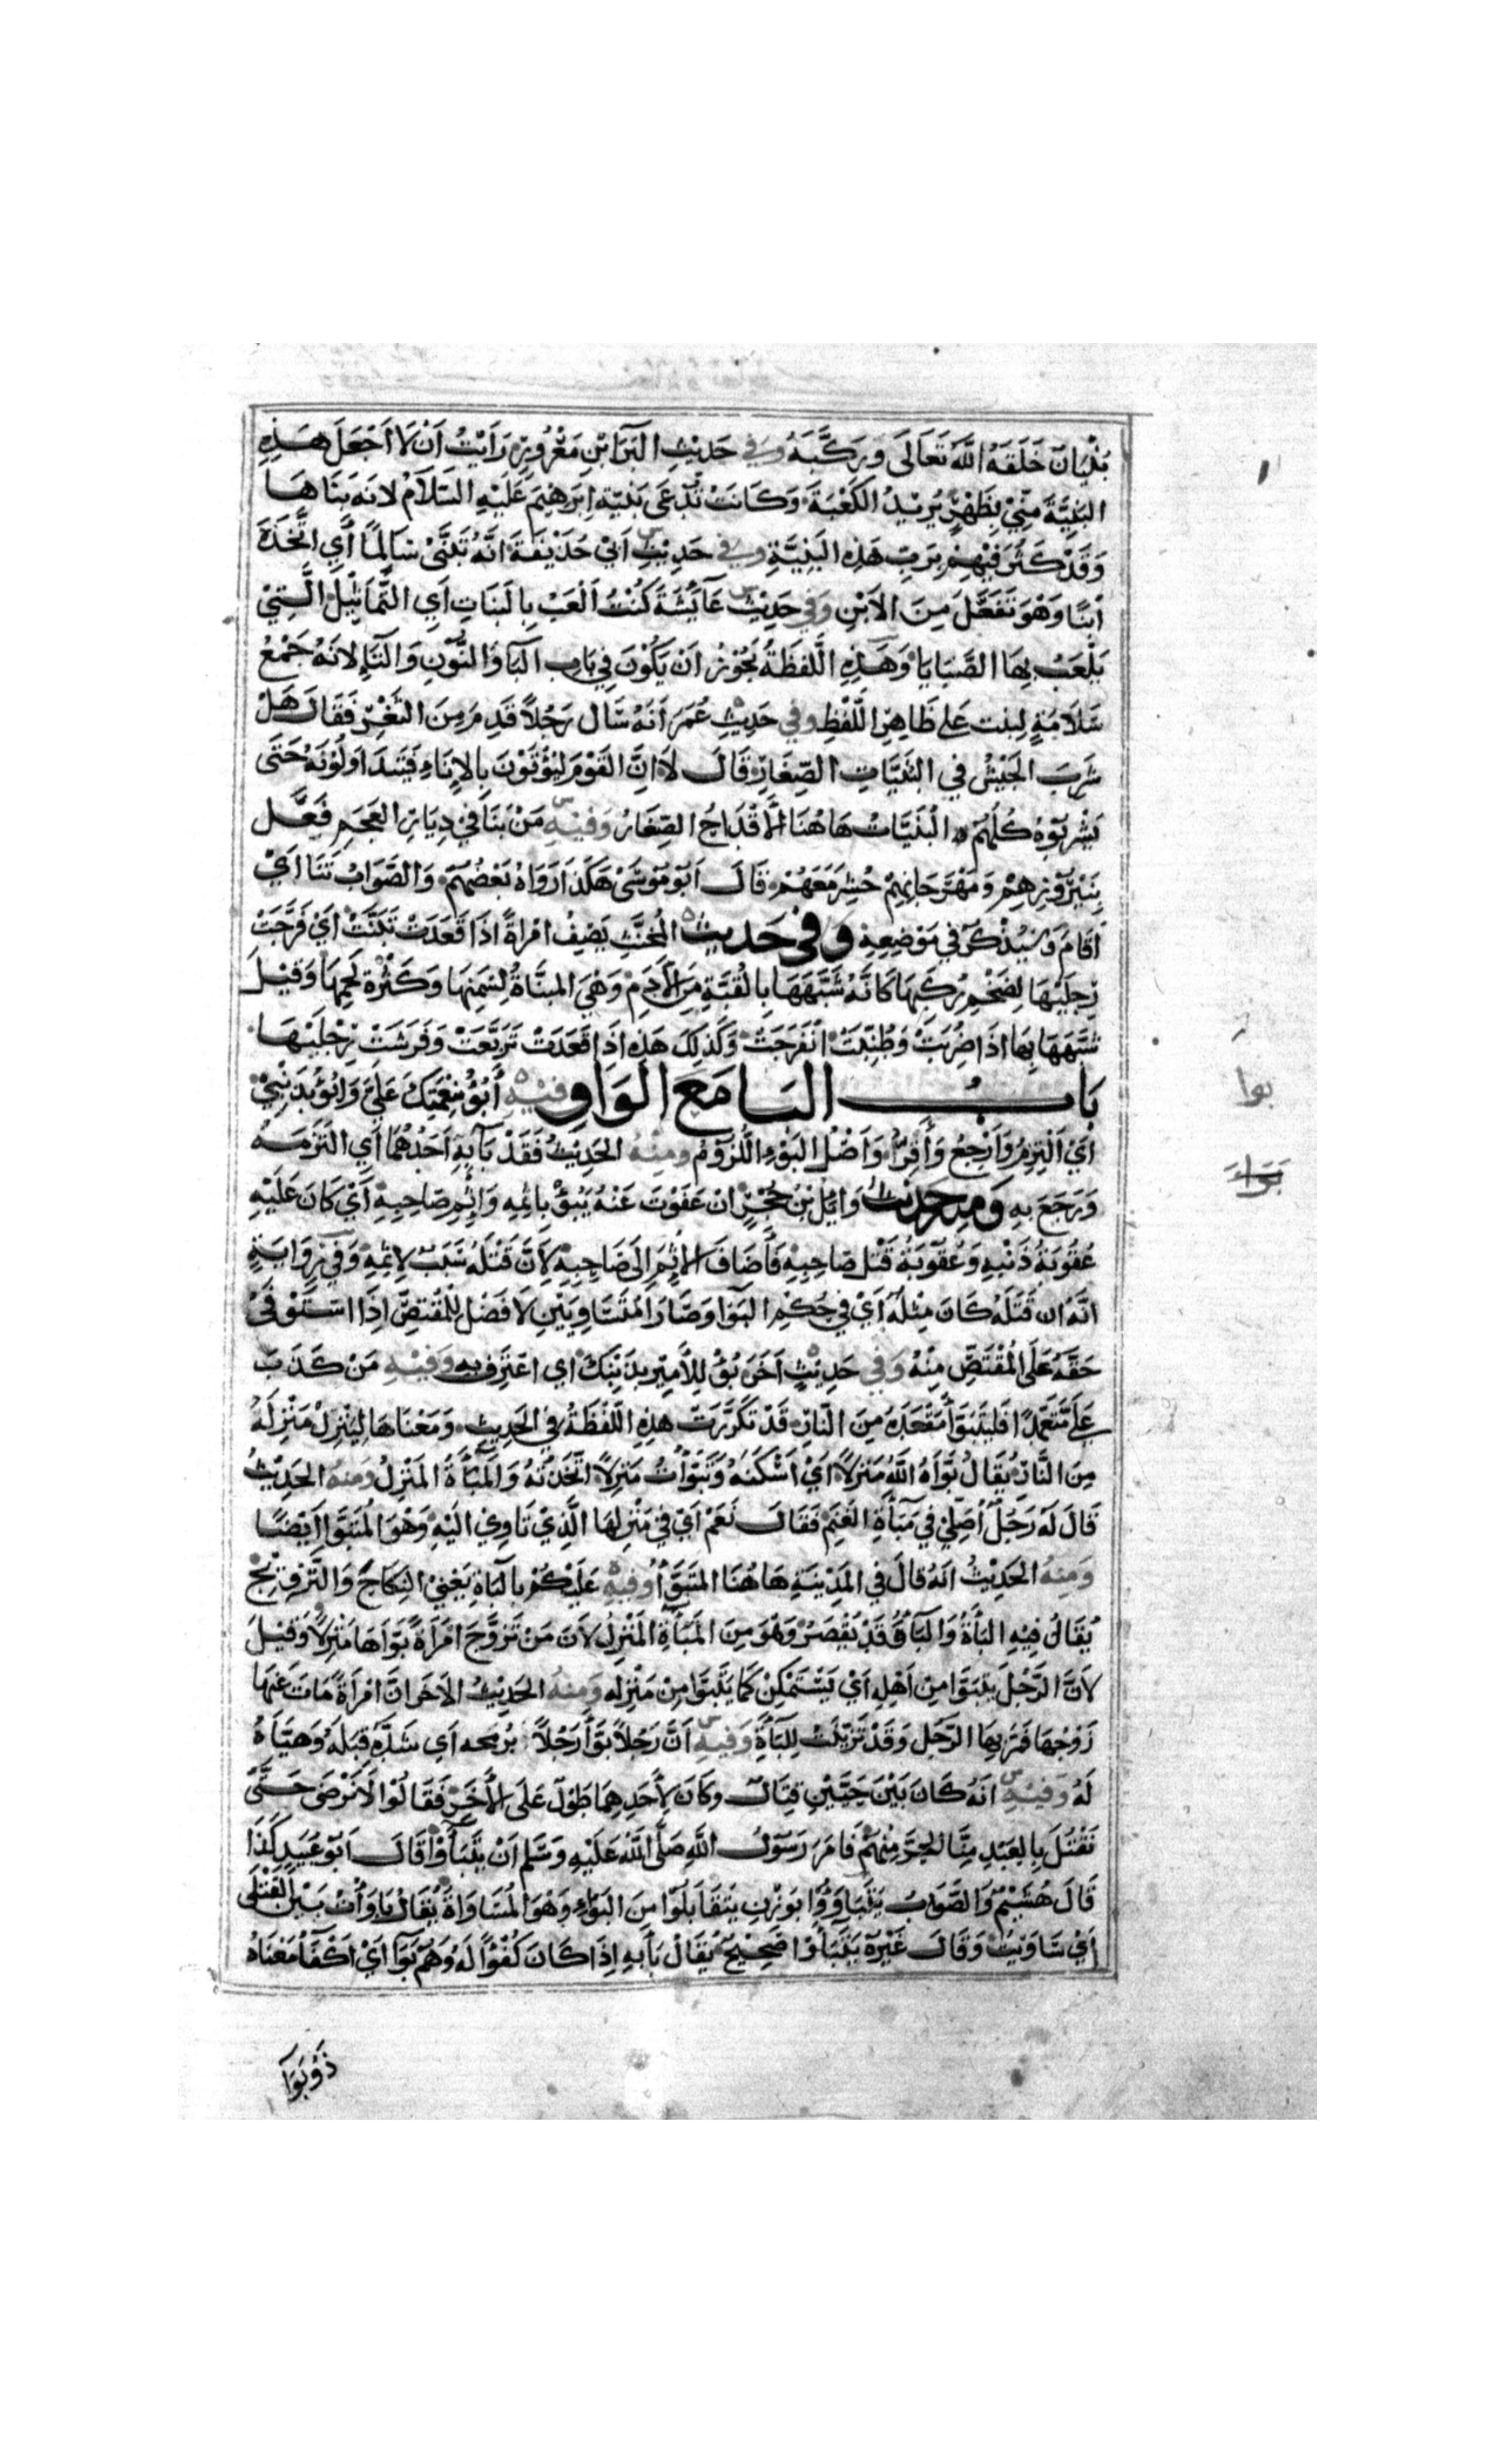 بُنْيَانٌ خَلَقَهُ اللّٰهُ تَعَالَى وَرَكَّبَهُ وَفي حَدِيْثِ البَرَآءِ بْنِ مَعْرُوْرٍ رَأَيْتُ اَنْ لَا اَجْعَلَ هَذِهِ
البَنِيَّةَ مِنِّيْ بِظَهْرٍ يُرِيْدُ الكَعْبَةَ وَكَانَتْ تُدْعَى بَنِيَّةَ اِبْرٰهِيْمَ عَلَيْهِ السَّلَامْ لانَهُ بَنَاهَا
وَقَدْ كَثُرَ فِيْهِمْ بِرَبِّ هَذِهِ البَنِيَّةِ وفي حَدِيْثِ اَبيْ حُذَيْفَةَ اَنَّهُ تَبَنَّىْ سَالِمًا أَي اتَّخَذَهُ
اْبنًا وَهْوَ تَفَعَّلَ مِنَ الاَبْنِ وَفي حَدِيْثِ عَآئِشَةَ كُنْتُ اَلْعَبُ بِالبَنَاتِ اَيِ التَّمَاثِيْلَ الَّتِيْ
يَلْعَبُ بِهَا الصَّبَايَا وَهَذِهِ الَّلفظَةُ يَجُوْزُ اَنْ يَكُوْنَ فِي بَابِ البَآ وَالنُّوْنِ وَالتَآءِ لانَهُ جَمْعُ
سَلَامَةٍ لِبنت عَلى ظَاهِرِ اللَّفْظِ وفي حَدِيْثِ عُمَرَ اَنَهُ سَال رَجُلًا قَدِمَ مِنَ الثَغْرِ فَقَالَ هَلْ
شَرِبَ الجَيْشُ في البُنَيَّاتِ الصِّغَارِ قَالَ لَا اِنَّ القَوْمَ لَيُؤْتَوْنَ بِالاِنَاءِ فَيَتَدَاوَلُوْنَهُ حَتَى
يَشْرَبُوْهُ كُلُّهُمْ البُنَيَّاتُ هَاهُنَا الأَقْدَاحُ الصِغَارُ وَفيْهِ مَنْ بَنَا في دِيَارِ العَجَمِ فَعَمِلَ
بِنَيْرُوْزِهِمْ وَمَهْرَجَانِهِمْ حُشِرَ مَعَهُمْ قَالَ اَبُوْ مُوْسَىْ هَكَذَا رَوَاهُ بَعْضُهُمْ وَالصَّوَابُ تَنَأ اَيْ
اَقَامَ وَسَيُذْكَرُ في مَوْضِعِهِ وَفي حَدِيث المُخَنَّثِ يَصِفُ امْرَاةً اذَا قَعَدَتْ تَبَنَّتْ اَيْ فَرَّجَتْ
رِجلَيْهَا لِضَخْمِ رَكَبِهَا كَانَّهُ شَبَّهَهَا بِالقُبَّةِ مِنَ الأَدَمِ وَهْيَ المبنَّاةُ لِسَمِنِهَا وَكَثْرَةِ لَحمِهَا وَقيْلَ
شَبَّهَهَا بِهَا اذَا ضُرِبَتْ وَطُنِّبَتْ انْفَرَجَتْ وَكَذلِكَ هَذِهِ اذَا قَعَدَتْ تَرَبَّعَتْ وَفَرَشَتْ رِجْلَيْهَا
بَابُ البَا مَعَ الوَاوِ فيْهِ أَبُوْءُ بِنِعْمَتِكَ عَلَيَّ وَابُوْءُ بِذَنْبِيْ
اَيْ اَلْتَزِمُ وَاَرْجِعُ وَأُقِرُّ وَاَصْلُ البَوْءِ اللُّزُوْمُ ومِنْهُ الحَدِيْثُ فَقَدْ بَآءَ بِهِ اَحَدُهُمَا اَيِ الْتَزَمَهُ
وَرَجَعَ بِهِ وَمِنهُ حَدِيْثُ وَائِلِ بْنِ حُجْرٍ اِنْ عَفَوْتَ عَنْهُ يَبُوْءُ بِاثمِهِ وَاِثْمِ صَاحِبِهِ اَيْ كَانَ عَلَيْهِ
عُقُوْبَةُ ذَنْبِهِ وَعُقُوْبَةُ قَتْلِ صَاحِبِهِ فَأَضَافَ الاِثْمَ اِلَى صَاحِبِهِ لاَنَّ قَتْلَهُ سَبَبٌ لاِثمِهِ وَفي رِوَايَةٍ
انَّهُ ان قَتَلَهُ كَانَ مِثْلَهُ اَيْ في حُكْمِ البَوَآ وَصَارَا مُتَسَاوِيَيْنِ لَا فَضْلَ لِلْمُقْتَصِّ اِذَا اسْتَوْفىْ
حَقَّهُ عَلَى المُقْتَصِّ مِنْهُ وَفي حَدِيْثٍ اَخَرَ بُؤْ لِلأَمِيْرِ بِذَنْبِكَ اي اعْتَرِفْ بِهِ وَفيْهِ مَنْ كَذَبَ
عَلَيَّ مُتَعَمِّدًا فَليَتَبَوَّأ مَقْعَدَهُ مِنَ النَّارِ قَدْ تَكَرَّرَتْ هَذِهِ اللَّفْظَةُ في الحَدِيْثِ وَمَعْنَاهَا لِيَنْزِلْ مَنْزِلَهُ
مِنَ النَّارِ يُقَالُ بَوَّاَهُ اللّٰهُ مَنْزِلًا اَيْ اَسْكَنَهُ وَتَبَوَّأْتُ مَنْزِلًا اتَّخَذْتُهُ وَالمَبَأةُ المَنْزِلُ وَمنهُ الحَدِيْثُ
قَالَ لَهُ رَجُلٌ اُصَلِّيْ في مَبَأَةِ الغَنَمِ فَقَالَ نَعَمْ اَيْ في مَنْزِلِهَا الَّذِيْ تَاوِي اِلَيْهِ وَهْوَ المُتَبَوَّأُ اَيْضًا
وَمِنهُ الحَدِيْثُ انَهُ قَالَ في المَدِيْنَةِ هَاهُنَا المُتَبَوَّأُ وفيْهِ عَلَيْكُمْ بِالبَآةِ يَعْنِيْ النِكَاحَ وَالتَّزْوِيْجَ
يُقَالُ فِيْهِ البَآءَةُ وَالبَآءُ وَقَدْ يُقْصَرُ وَهْوَ مِنَ المَبَآءَةِ المَنْزِلِ لاَنَ مَنْ تَزَوَّجَ امْرَاَةً بَوَّاَهَا مَنْزِلًا وَقيْلَ
لاَنَّ الرَّجُلَ يَتَبَوَّا مِنْ اَهْلِهِ اَيْ يَسْتَمْكِنْ كَمَا يَتَبَوَّا مِنْ مَنْزِلِهِ وَمِنهُ الحَدِيْثُ الاَخَر انَّ امْرَاَةً مَاتَ عَنْهَا
زَوْجُهَا فَمَرَّ بِهَا الرَّجُل وَقَدْ تَزَيَّنَتْ لِلْبَآءَةِ وَفيهِ اَنَّ رَجُلًا بَوَّأ رَجُلًا بِرُمحه اَي سَدَّدَهُ قِبَلَهُ وَهَيَّاَهُ
لَهُ وَفيْهِ انَهُ كَانَ بَيْنَ حَيَّيْنِ قِتَالٌ وكَانَ لأَحَدِهِمَا طَوْلٌ عَلَى الأَخَرِ فَقَالُوْا لَا نَرْضَى حَتَّى
نَقْتُلَ بِالعَبْدِ مِنَّا الحُرَّ مِنْهُمْ فَامَرَ رَسُوْلُ اللّٰهِ صَلَّى اللّٰهُ عَلَيْهِ وَسَلَّمَ اَنْ يَتَبَاَّؤْا قَالَ اَبُوْ عُبَيدٍ كَذَا
قَالَ هُشَيْمٌ وَالصَّوَابُ يَتَبَاوَؤُا بوَزْنِ يَتَقَابَلُوْا مِنَ البَوَاءِ وَهْوَ المُسَاوَاةُ يُقَالُ بَاوَأْتُ بَيْنَ القَتْلَى
اَيْ سَاوَيْتُ وَقَالَ غَيْرُهُ يَتَبَأَّوْا صَحِيْحٌ يُقَالُ بَأَ بِهِ اِذَا كَانَ كُفْوًا لَهُ وَهُمْ بَوَآ اَيْ اَكْفَآ مَعْنَاهُ
ذَوُوْ بَوَآ
بوا
بَوَاء